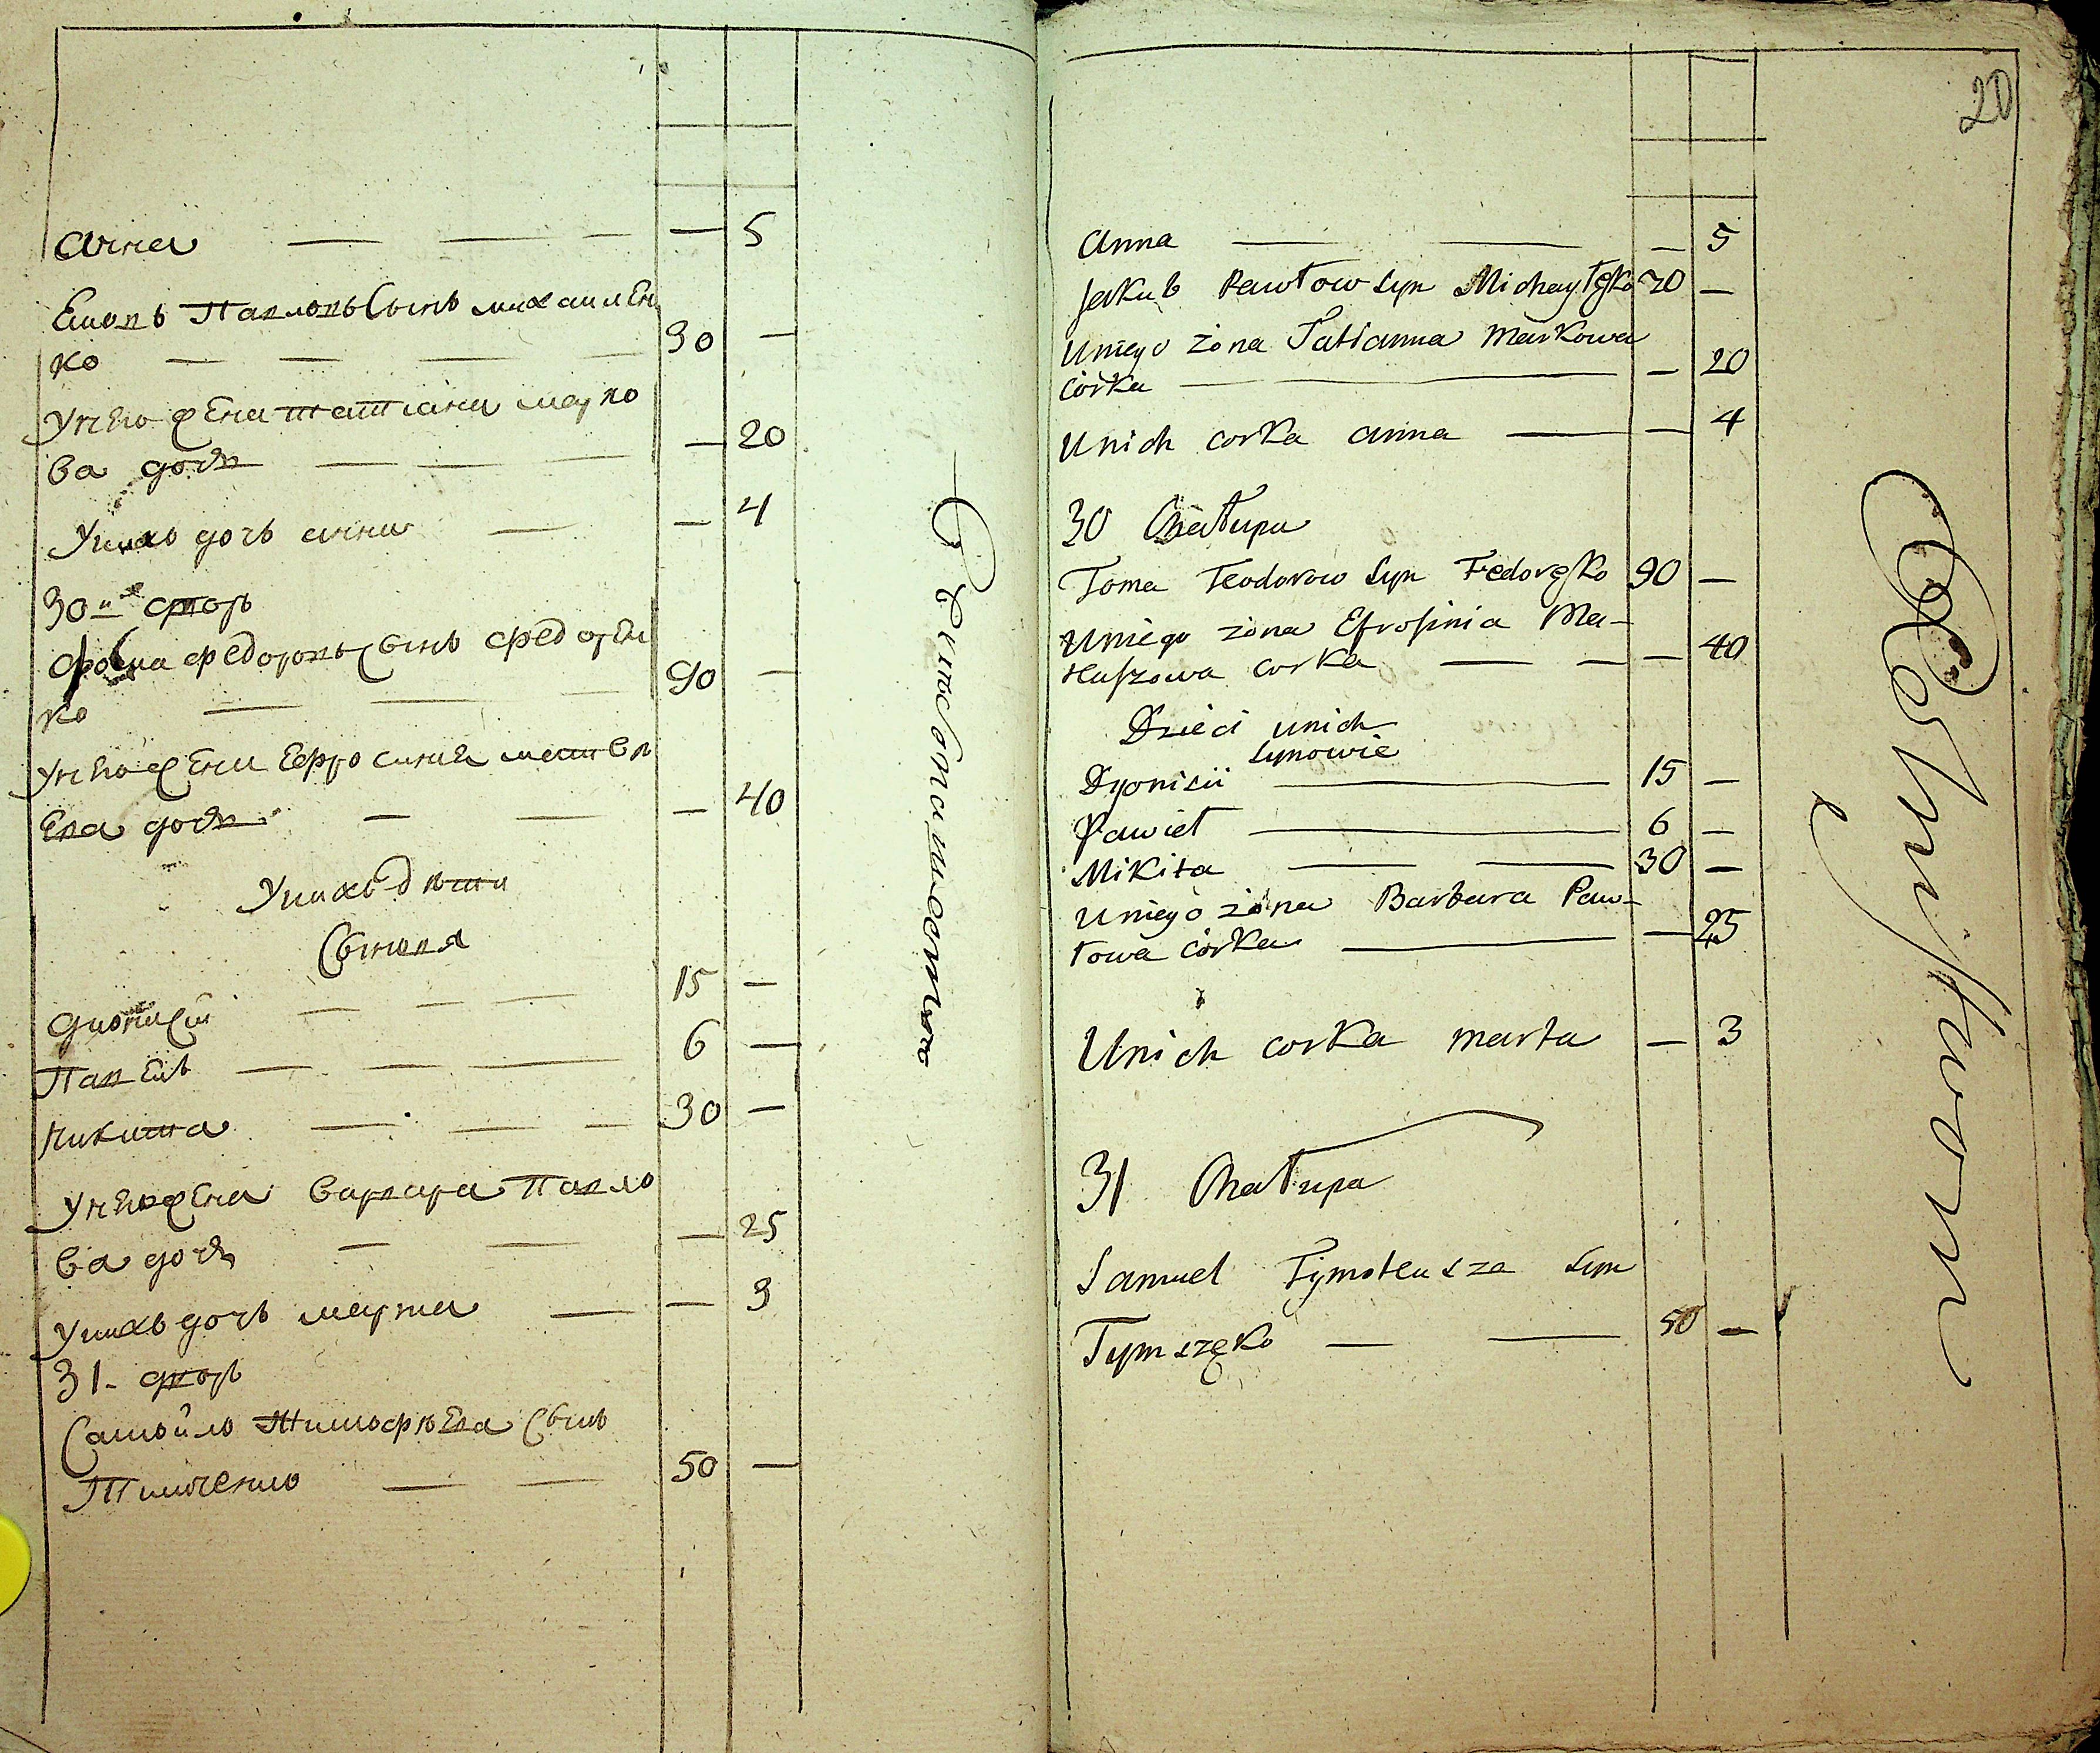 Анна — — — — 5
Яковъ Павловъ Сынъ михаилен
ко — — — — 30 —
Унего жена татиана марко
ва дочь — — — — 20
Унихъ дочь анна — — 4
30й дворъ
Фома федоровъ Сынъ федорен
ко — — — 90 —
Унего жена Ефросиния матве
ева дочь — — — 40
Унихъ дети
Сыновя
дионисий — — — 15 —
Павелъ — — — 6 —
никита — — — 30 —
Унего жена варвара Павло
ва дочь — — — 25
Унихъ дочь марта — — 3
31 дворъ
Самойло Тимофеева Сынъ
Тимченко — — 50 —
20
Anna — — — 5
Jakub Pawłow Syn Michayłęko 30 —
Uniego żona Tatianna Markowa
córka — — — 20
Unich corka anna — — 4
30 Chałupa
Toma Teodorow Syn Fedoręko 90 —
Uniego żona Efrosinia Ma-
teuszowa corka — — — 40
Dzieci unich
Synowie
Dyonisii — 15 —
Paweł — 6 —
Mikita — — 30 —
Uniego żona Barbara Paw-
łowa córka — — 25
Unich corka marta — 3
31 Chałupa
Samuel Tymoteusza Syn
Tymszęko — — 50 —